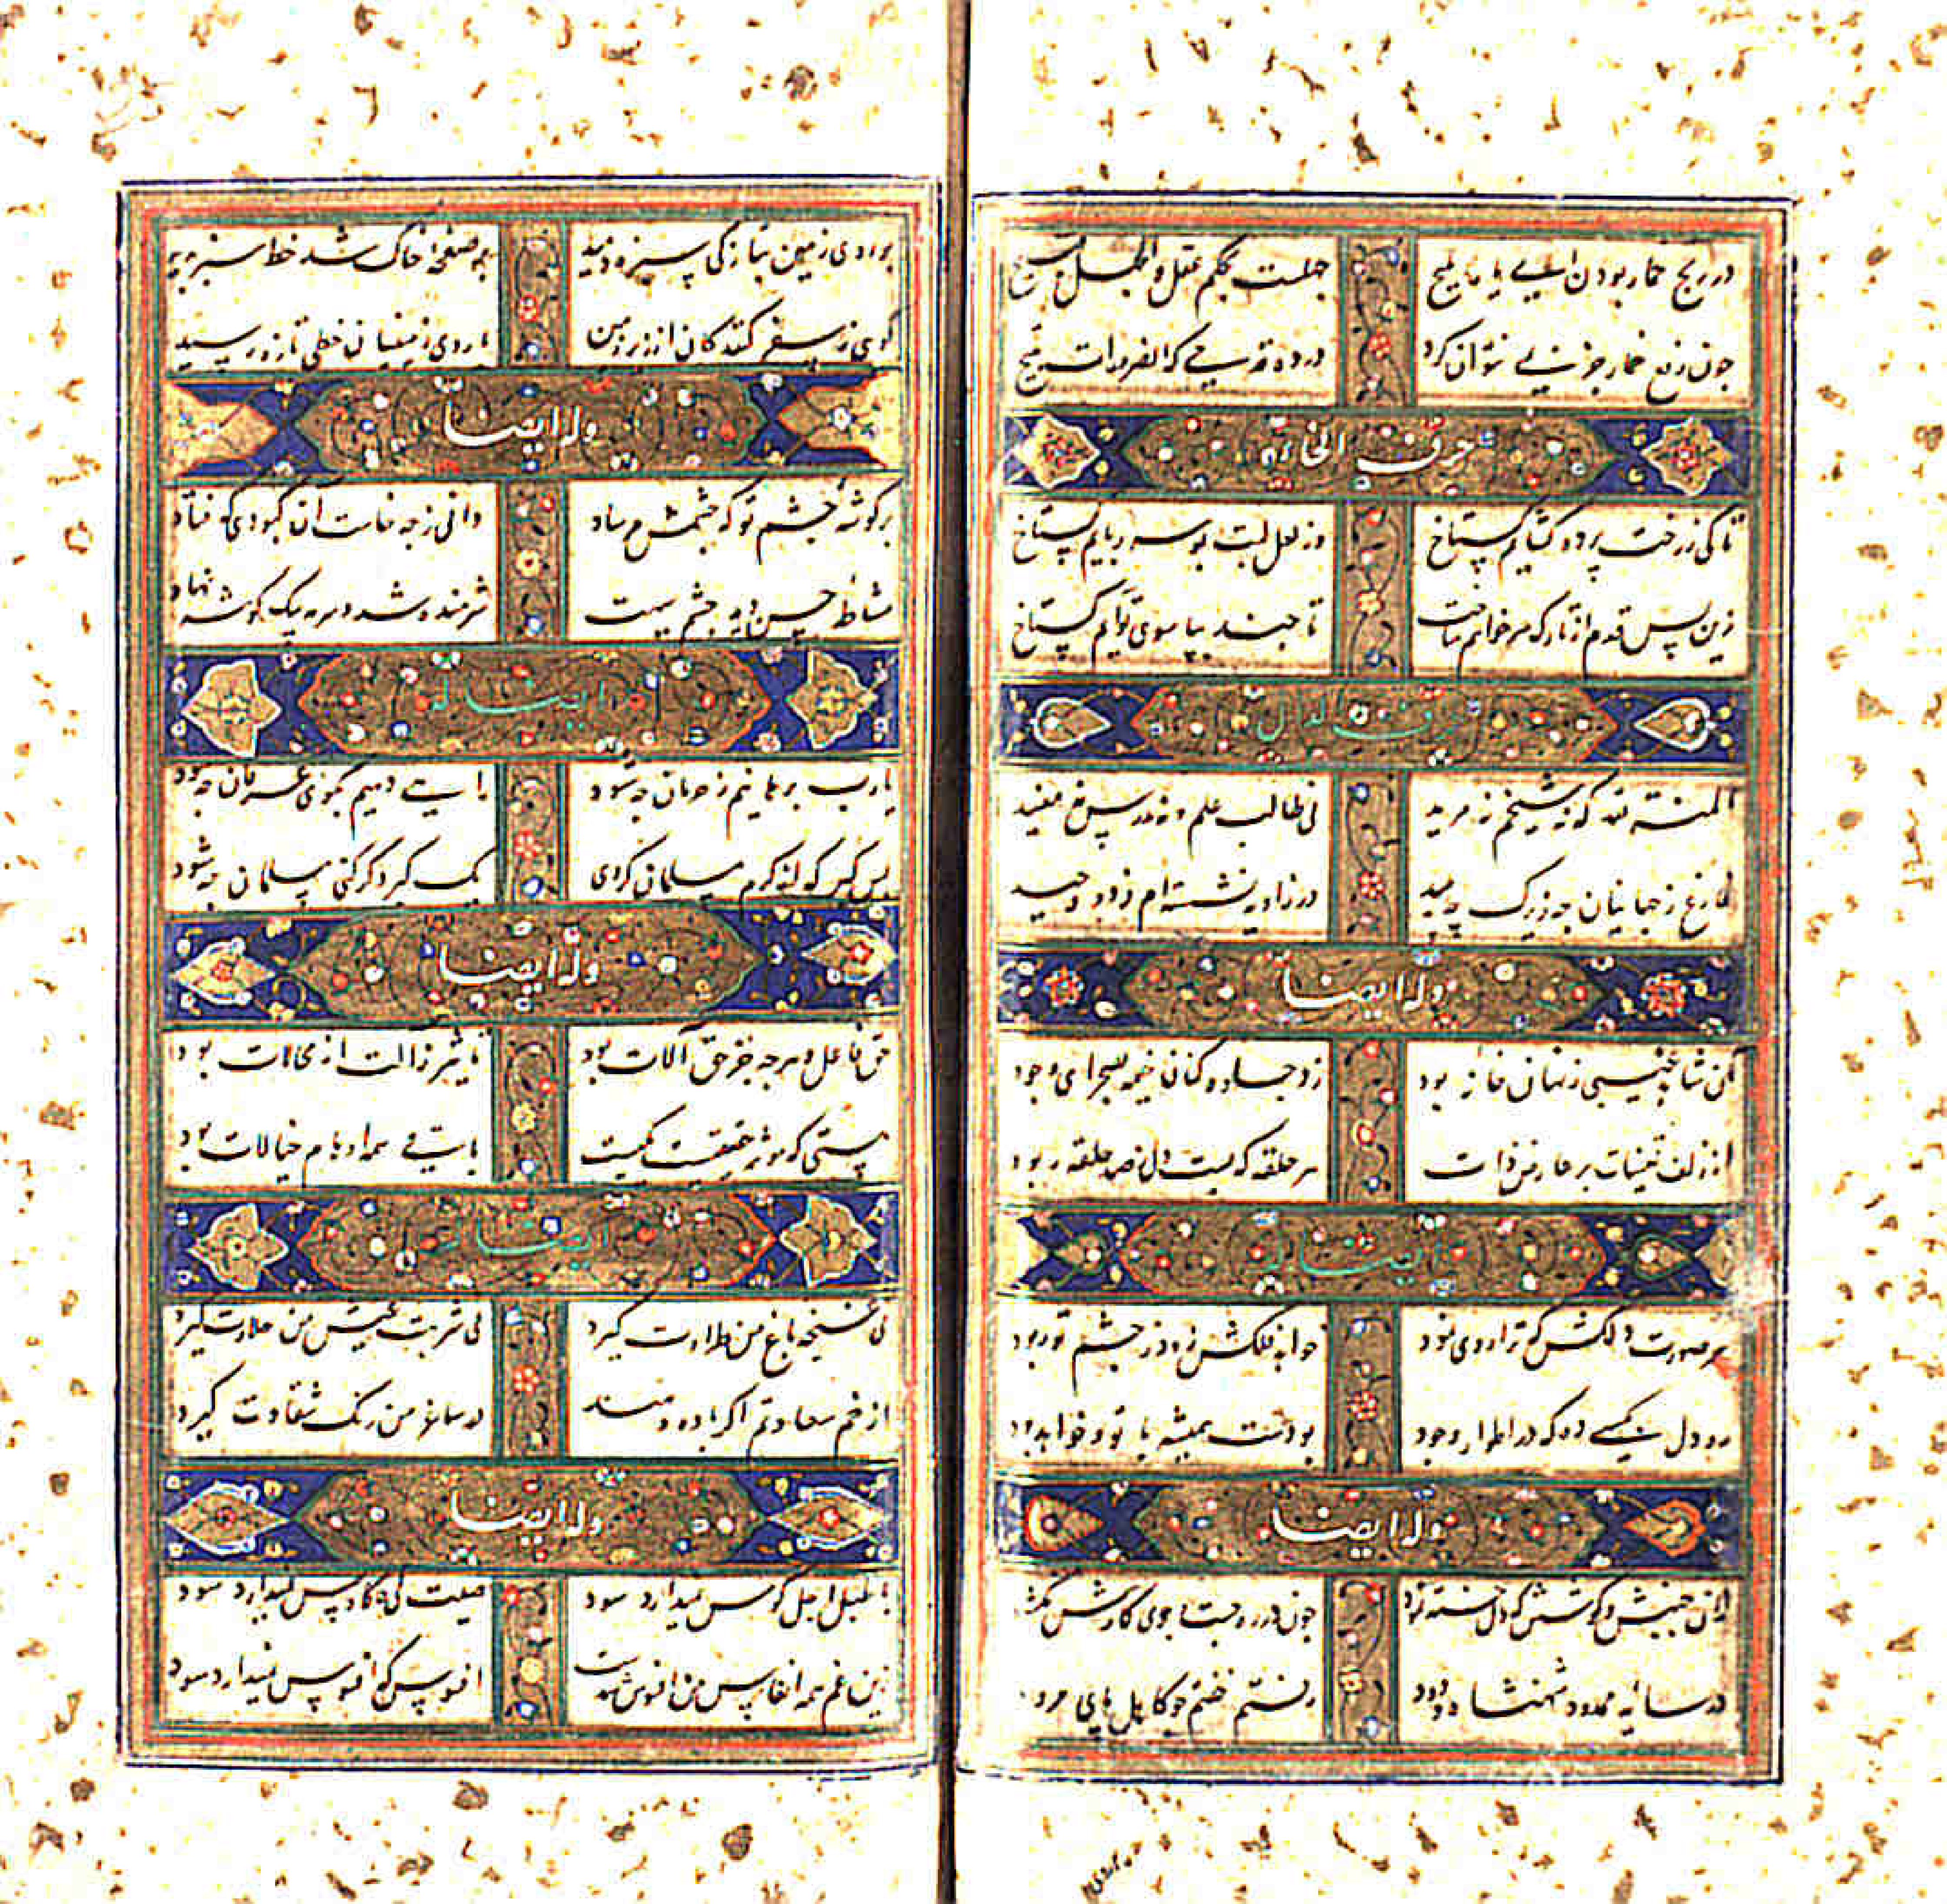 در رنج خمار بودن ای با ملیح جهلست بحکم عقل و الجهل قبیح
چون دفع خمار جز بمی نتوان کرد در ده قدحی که الضرورات تبیح
حرف الخاء
تا کی ز رخت پرده کشایم کستاخ وز لعل لبت بوسه ربایم کستاخ
زین پس قدم از تارک سر خواهم ساخت تا چند بپا سوی تو آیم کستاخ
حرف الدال
المنة لله که نه شیخم نه مرید نی طالب علم و نه مدرس نه مفید
فارغ ز جهانیان چه نزدیک چه بعید در زاویه نشسته ام فرد و وحید
وله ایضا
آن شاهد غیبی ز نهان خانه بود زد جلوه کنان خیمه بصحرای وجود
از زلف تعینات بر عارض ذات هر حلقه که بست دل ز صد حلقه ربود
ایضا له
هر صورت دلکش که ترا روی نمود خواهد فلکش زود ز چشم تو ربود
رو دل بکسی ده که در اطوار وجود بودست همیشه با تو و خواهد بود
وله ایضا
این جنبش و کوشش که دل خسته نمود چون در ره جست و جوی کارش نکشود
در سایه ممدود شهنشاه ودود رفتم خفتم چو کاهل پای مرود
بر وادی زمین بتازکی سبزه دمید بر صفحه خاک شد خط سبز پدید
کویی ز سفر کنندکان از زیر زمین با روی زمینیان خطی تازه رسید
وله ایضا
بر کوشه چشم تو که چشمش مرساد دانی ز چه خاست آن کبودی که فتاد
مشاطه حسن دید چشم سیهت شرمنده شد و سرمه بیک کوشه نهاد
ایضا له
یارب برهانیم ز حرمان چه شود راهی دهیم بکوی عرفان چه شود
بس کبر که از کرم مسلمان کردی یک کبر دکر کنی مسلمان چه شود
وله ایضا
حق فاعل و هر چه جز حق آلات بود تأثیر ز آلت از محالات بود
هستی که مؤثر حقیقیست یکیست باقی همه اوهام و خیالات بود
ایضا له
نی غنچه باغ من طراوت کیرد نی شربت عیش من حلاوت کیرد
از خم سعادتم اکر باده دهند در ساغر من رنک شقاوت کیرد
وله ایضا
با طبل اجل کوس نمیدارد سود صیت کی و کاوس نمیدارد سود
زین غم همه انفاس من افسوس شدست افسوس که افسوس نمیدارد سود